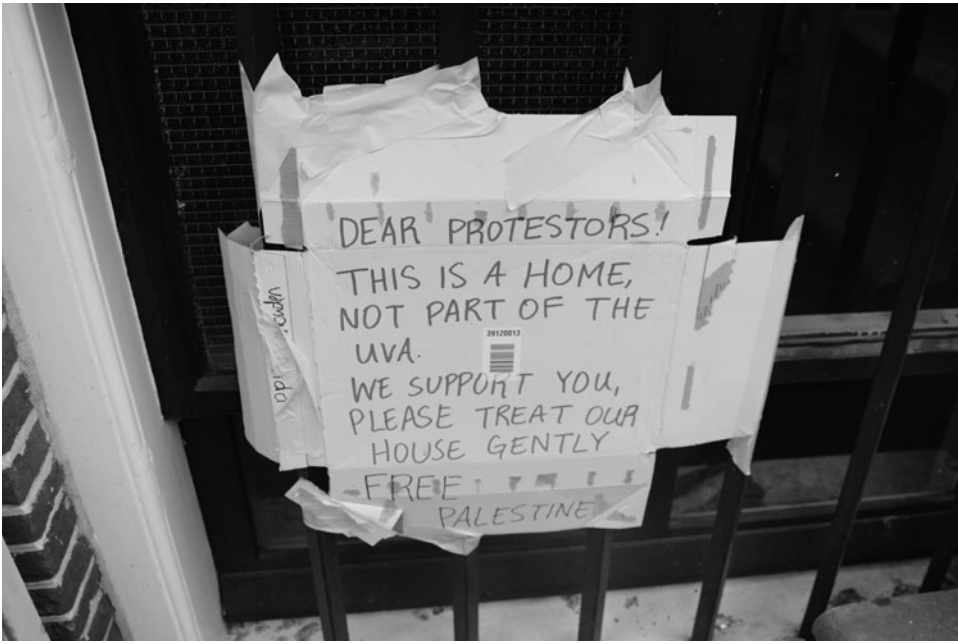 DEAR PROTESTORS!
THIS IS A HOME,
NOT PART OF THE
39120013
UVA.
WE SUPPORT YOU,
PLEASE TREAT OUR
HOUSE GENTLY
FREE
PALESTINE